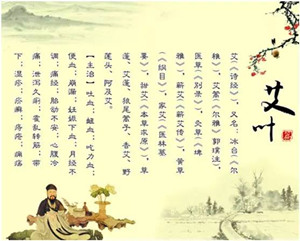 艾叶
艾（《诗经》），又名：冰台（《尔
雅》），艾蒿（《尔雅》郭璞注），
医草（《别录》），灸草（《埤
雅》），蕲艾（《蕲艾传》），黄草
（《纲目》），家艾（《医林纂
要》），甜艾（《本草求原》），草
蓬，艾蓬，狼尾蒿子，香艾，野
莲头，阿及艾。
【主治】吐血；衄血；咯力血；
便血；崩漏；妊娠下血；月经不
调；痛经；胎动不安；心腹冷
痛；泄泻久痢；霍乱转筋；带
下；湿疹；疥癣；痔疮；痈疡